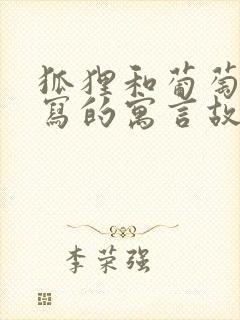 狐狸和葡萄
寫的寓言故
李荣强